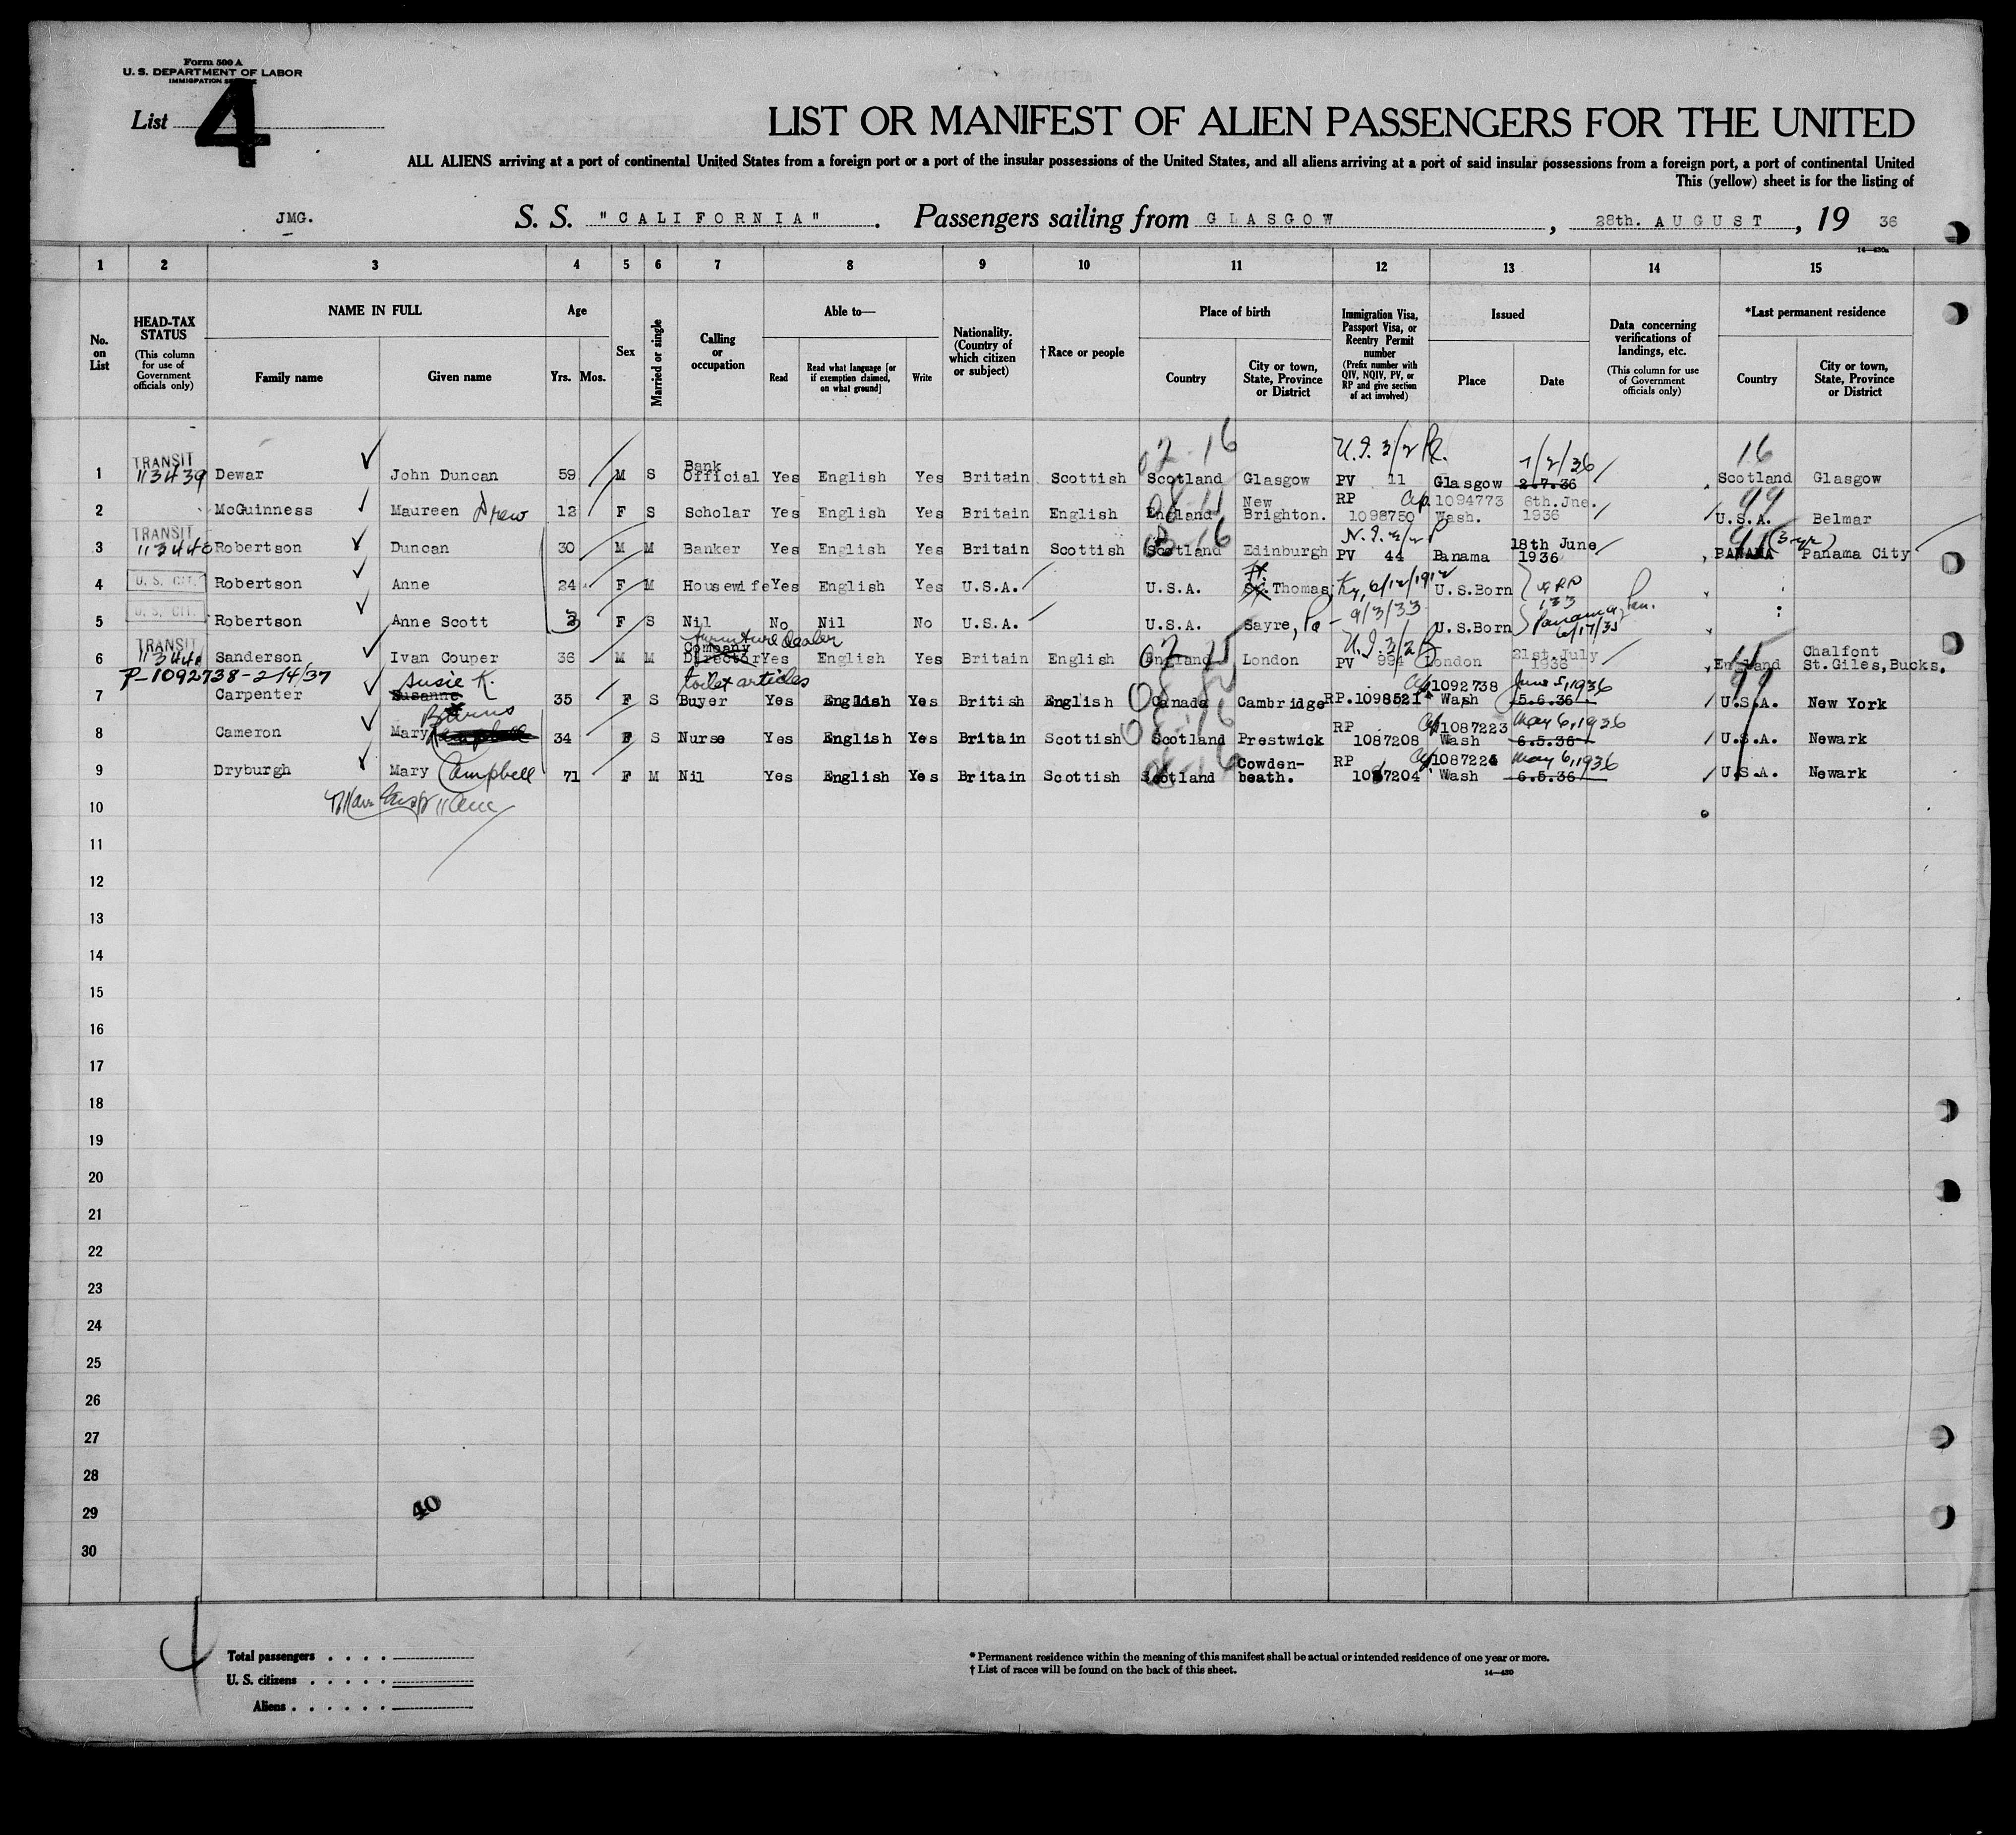 Form 500 A
U. S. DEPARTMENT OF LABOR
IMMIGRATION SERVICE
List 4
LIST OR MANIFEST OF ALIEN PASSENGERS FOR THE UNITED
ALL ALIENS arriving at a port of continental United States from a foreign port or a port of the insular possessions of the United States, and all aliens arriving at a port of said insular possessions from a foreign port, a port of continental United
This (yellow) sheet is for the listing of
JMG. S. S. "CALIFORNIA". Passengers sailing from GLASGOW, 28th. AUGUST, 19 36
1 2 3 4 5 6 7 8 9 10 11 12 13 14 15
No. on List
HEAD-TAX STATUS (This column for use of Government officials only)
NAME IN FULL Family name Given name
Age Yrs. Mos.
Sex
Married or single
Calling or occupation
Able to— Read Read what language [or if exemption claimed, on what ground] Write
Nationality. (Country of which citizen or subject)
†Race or people
Place of birth Country City or town, State, Province or District
Immigration Visa, Passport Visa, or Reentry Permit number (Prefix number with QIV, NQIV, PV, or RP and give section of act involved)
Issued Place Date
Data concerning verifications of landings, etc. (This column for use of Government officials only)
*Last permanent residence Country City or town, State, Province or District
1 TRANSIT 113439 Dewar John Duncan 59 M S Bank Official Yes English Yes Britain Scottish Scotland Glasgow PV 11 Glasgow 2.7.36 1/2/36 Scotland Glasgow
2 McGuinness Maureen Drew 12 F S Scholar Yes English Yes Britain English England New Brighton. RP 1098750 1094773 Wash. 6th. Jne. 1936 U.S.A. Belmar
3 TRANSIT Robertson Duncan 30 M M Banker Yes English Yes Britain Scottish Scotland Edinburgh PV 44 Panama 18th June 1936 PANAMA Panama City
4 U. S. CIT. Robertson Anne 24 F M Housewife Yes English Yes U.S.A. U.S.A. Ft. Thomas, Ky, 6/12/1912 U.S.Born
5 U. S. CIT. Robertson Anne Scott 3 F S Nil No Nil No U.S.A. U.S.A. Sayre, Pa - 9/3/33 U.S.Born Panama 6/17/35
6 TRANSIT Sanderson Ivan Couper 36 M M Company Director furniture dealer Yes English Yes Britain English England London PV 994 London 21st. July 1936 England Chalfont St.Giles, Bucks.
P-1092738-2/4/37
7 Carpenter Susanne Susie K. 35 F S Buyer toilet articles Yes English Yes British English Canada Cambridge RP.1098521 1092738 Wash 5.6.36 June 5, 1936 U.S.A. New York
8 Cameron Mary Burns 34 F S Nurse Yes English Yes Britain Scottish Scotland Prestwick RP 1087208 1087223 Wash 6.5.36 May 6, 1936 U.S.A. Newark
9 Dryburgh Mary Campbell 71 F M Nil Yes English Yes Britain Scottish Scotland Cowden-beath. RP 1087204 Wash 6.5.36 May 6, 1936 U.S.A. Newark
10
11
12
13
14
15
16
17
18
19
20
21
22
23
24
25
26
27
28
29
30
40
Total passengers
U. S. citizens
Aliens
* Permanent residence within the meaning of this manifest shall be actual or intended residence of one year or more.
† List of races will be found on the back of this sheet.
14—430